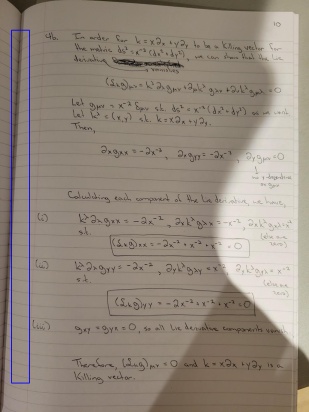 10
4b. In order for k = x∂x + y∂y to be a Killing vector for
the metric ds² = x⁻²(dx² + dy²), we can show that the Lie
derivative vanishes
(£kg)μν = kλ∂λgμν + ∂μkλgλν + ∂νkλgμλ = 0
Let gμν = x⁻²δμν s.t. ds² = x⁻²(dx² + dy²) as we want
Let kλ = (x,y) s.t. k = x∂x + y∂y.
Then,
∂xgxx = -2x⁻³, ∂xgyy = -2x⁻³, ∂ygμν = 0
no y-dependence
in gμν
Calculating each component of the Lie derivative, we have,
(i) kλ∂λgxx = -2x⁻², ∂xkλgλx = x⁻², ∂xkλgxλ = x⁻²
s.t. (else are
zero)
(£kg)xx = -2x⁻² + x⁻² + x⁻² = 0
(ii) kλ∂λgyy = -2x⁻², ∂ykλgλy = x⁻², ∂ykλgyλ = x⁻²
s.t. (else are
zero)
(£kg)yy = -2x⁻² + x⁻² + x⁻² = 0
(iii) gxy = gyx = 0, so all Lie derivative components vanish
Therefore, (£kg)μν = 0 and k = x∂x + y∂y is a
Killing vector.